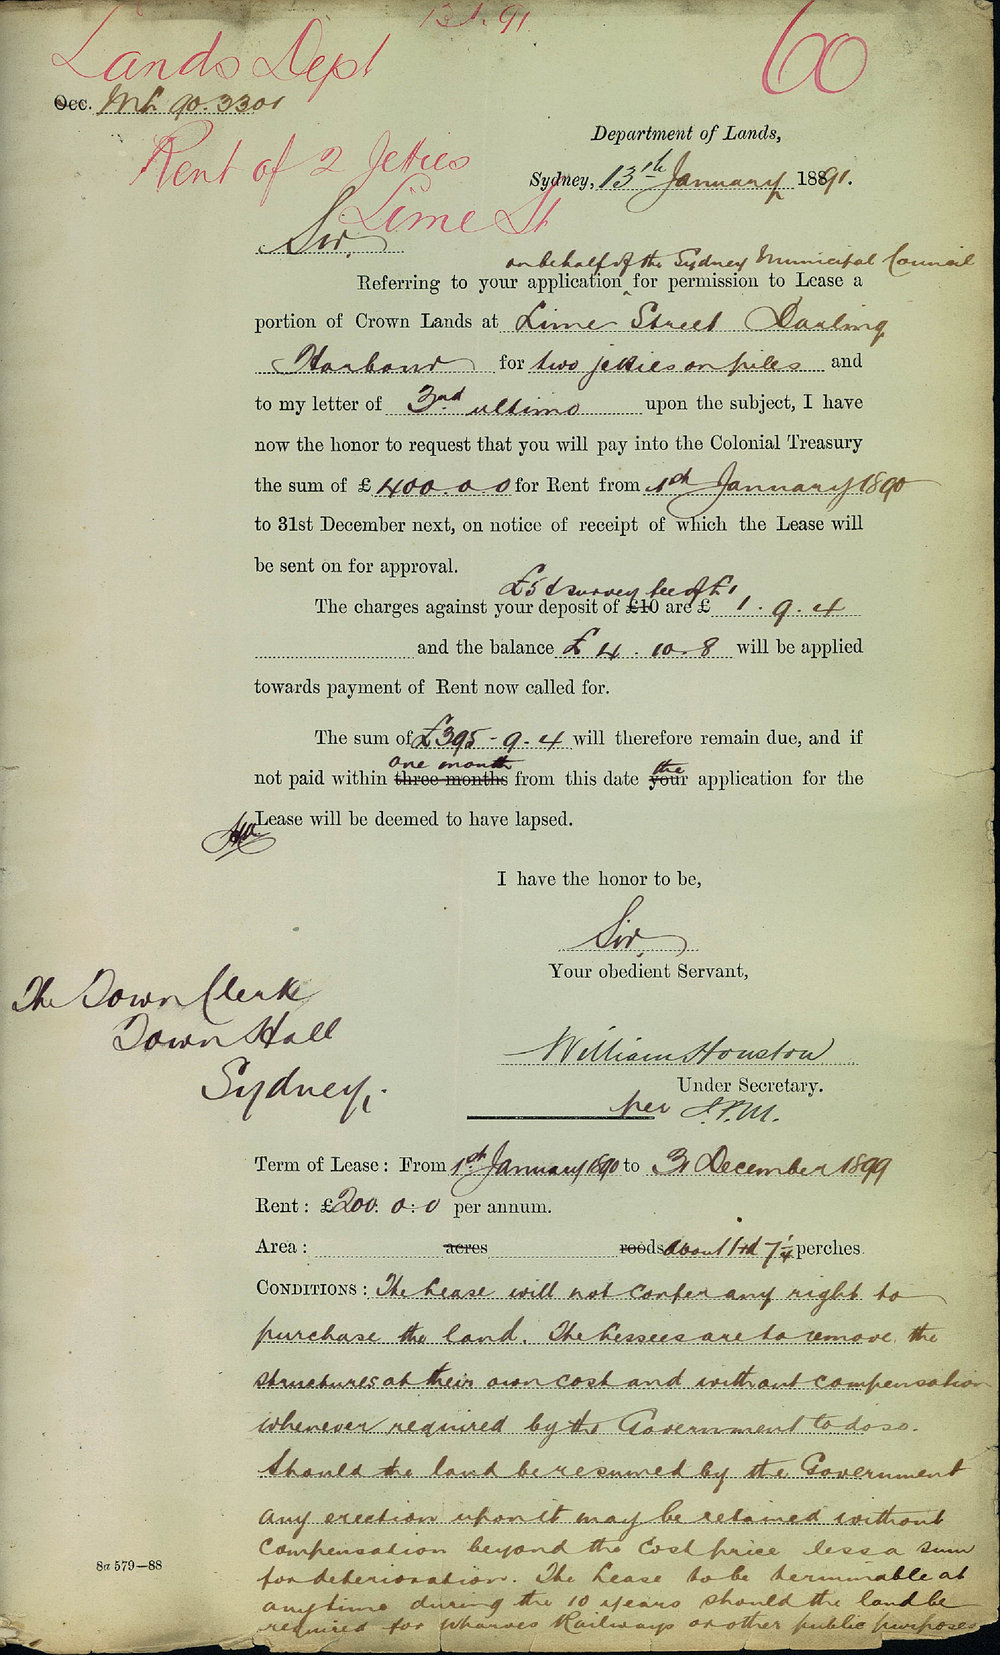 13.1.91
60
Lands Dept
Occ. Ms. 90.3301
Department of Lands,
Rent of 2 Jetties
Sydney, 13th January 1891.
Lime St
Sir,
on behalf of the Sydney Municipal Council
Referring to your application for permission to Lease a
portion of Crown Lands at Lime Street Darling
Harbour for two jetties on piles and
to my letter of 3rd ultimo upon the subject, I have
now the honor to request that you will pay into the Colonial Treasury
the sum of £400.0.0 for Rent from 1st January 1890
to 31st December next, on notice of receipt of which the Lease will
be sent on for approval.
£5 & survey fee of £1
The charges against your deposit of £10 are £ 1.9.4
and the balance £4.10.8 will be applied
towards payment of Rent now called for.
The sum of £395-9-4 will therefore remain due, and if
one month
the
not paid within three months from this date your application for the
Lease will be deemed to have lapsed.
I have the honor to be,
Sir,
Your obedient Servant,
The Town Clerk
Town Hall
Sydney.
William Houston
Under Secretary.
per J.P.M.
Term of Lease: From 1st January 1890 to 31 December 1899
Rent: £200:0:0 per annum.
Area: acres roods about 1rd 7¼ perches.
CONDITIONS: The Lease will not confer any right to
purchase the land. The Lessees are to remove the
structures at their own cost and without compensation
whenever required by the Government to do so.
Should the land be resumed by the Government
any erection upon it may be retained without
compensation beyond the cost price less a sum
for deterioration. The Lease to be terminable at
anytime during the 10 years should the land be
required for Wharves Railways or other public purposes
8a 579—88